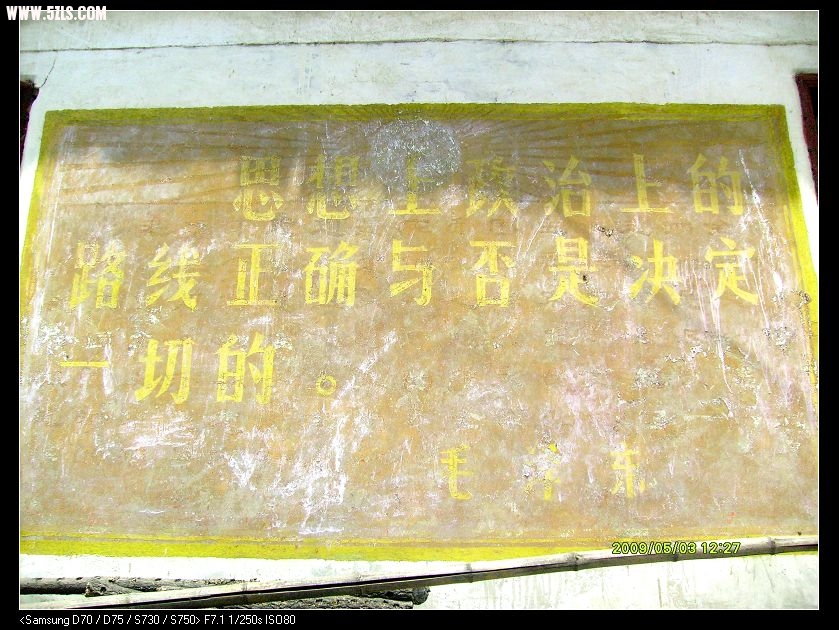 WWW.5ZLS.COM
思想上政治上的
路线正确与否是决定
一切的。
毛泽东
2009/05/03 12:27
<Samsung D70 / D75 / S730 / S750> F7.1 1/250s ISO80